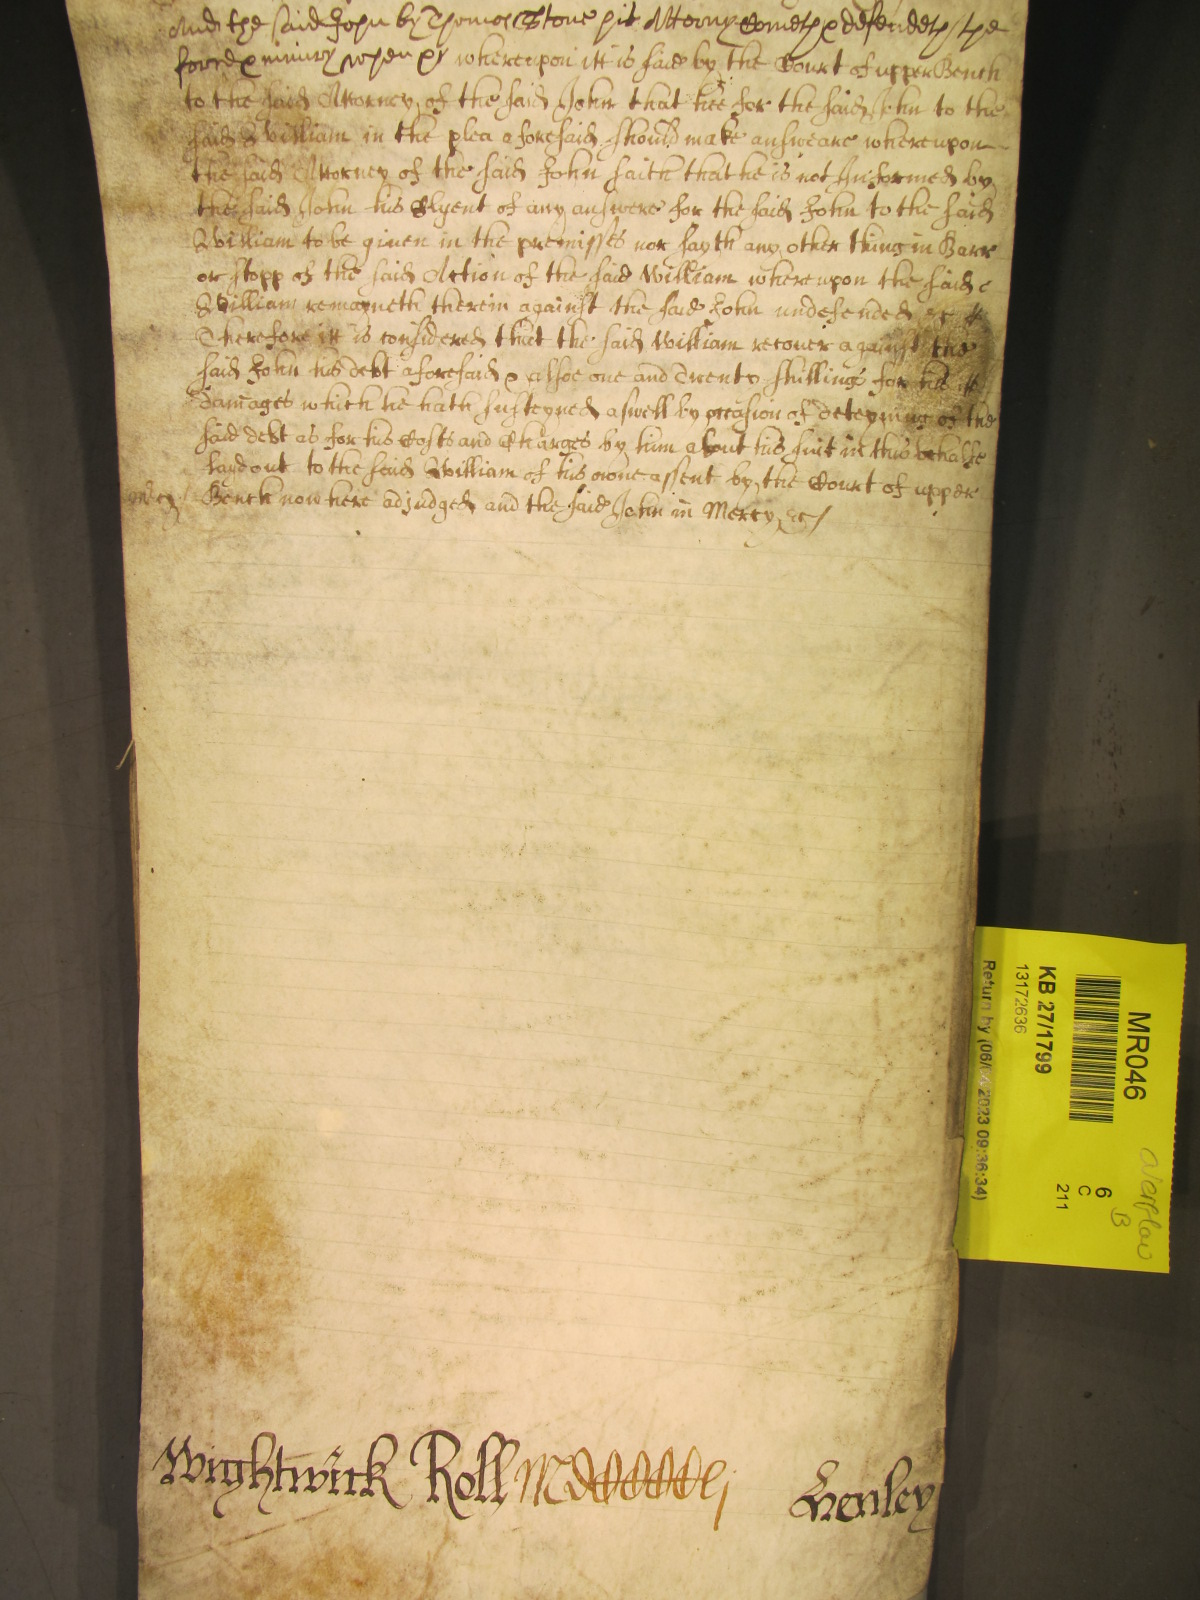 And the said John by Thomas Stone his Attorny cometh & defendeth the
force & iniury when &c whereupon itt is said by the Court of upper Bench
to the said Attorney of the said John that hee for the said John to the
said William in the plea aforesaid should make answeare whereupon
the said Attorney of the said John saith that he is not Informed by
the said John his Clyent of any answere for the said John to the said
William to be given in the premisses nor sayth any other thing in Barr
or stopp of the said Action of the said William whereupon the said
William remayneth therein against the said John undefended &c
Therefore itt is considered that the said William recover against the
said John his debt aforesaid & alsoe one and twenty shillings for his
damages which he hath susteyned aswell by occasion of deteyning of the
said debt as for his Costs and Charges by him about his suit in this behalfe
laydout to the said William of his owne assent by the Court of upper
Mercy Bench now here adjudged and the said John in Mercy &c
Wightwick Roll MDCCCCCLj Henley
MR046
KB 27/1799
13172636
Return by (06/04/2023 09:36:34)
6
C
211
overflow
B